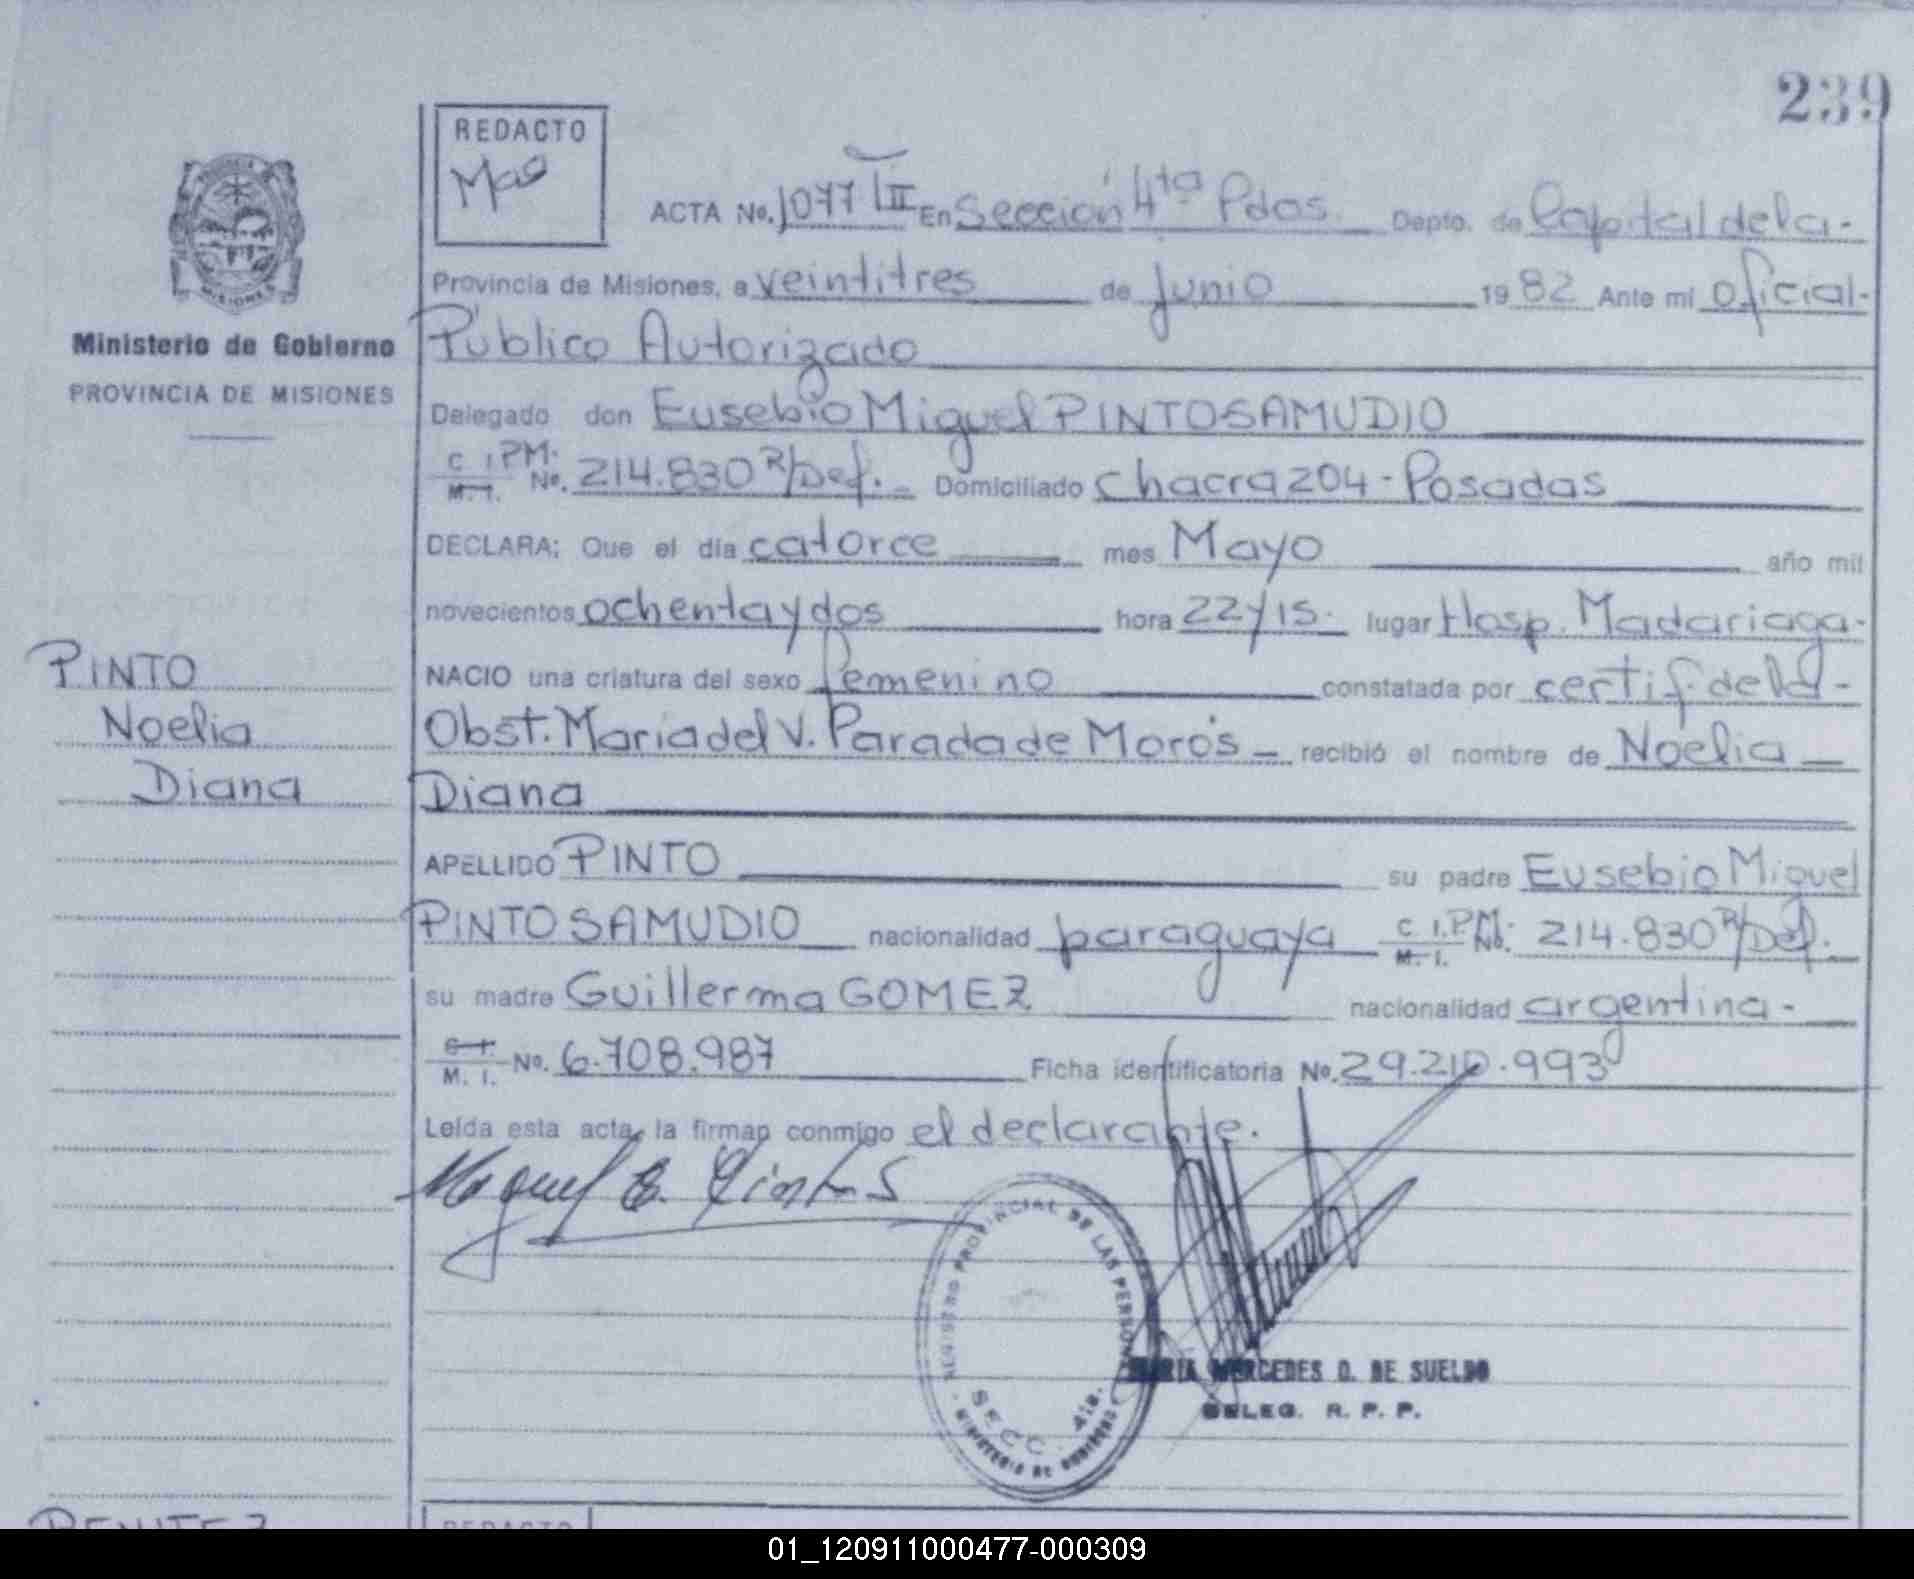 239
REDACTO
Mao
ACTA No. 1077 TII En Sección 4ta Pdas. Depto. de Capital de la-
Provincia de Misiones, a veintitres de Junio 1982 Ante mi oficial-
Ministerio de Gobierno
PROVINCIA DE MISIONES
Público Autorizado
Delegado don Eusebio Miguel PINTO SAMUDIO
C. I. PM.
M. I. No. 214.830 R/Def. Domiciliado Chacra 204 - Posadas
DECLARA; Que el día catorce mes Mayo año mil
novecientos ochenta y dos hora 22 y 15. lugar Hosp. Madariaga-
PINTO
Noelia
Diana
NACIO una criatura del sexo femenino constatada por certif. de la-
Obst. Maria del V. Parada de Morós - recibió el nombre de Noelia
Diana
APELLIDO PINTO su padre Eusebio Miguel
PINTO SAMUDIO nacionalidad paraguaya C. I. PM. M. I. No. 214.830 R/Def.
su madre Guillerma GOMEZ nacionalidad argentina-
C. I.
M. I. No. 6.708.987 Ficha identificatoria No. 29.210.993
Leída esta acta, la firman conmigo el declarante.
REGISTRO PROVINCIAL DE LAS PERSONAS
SECC. 4ta.
MINISTERIO DE GOBIERNO
MARIA MERCEDES D. DE SUELDO
DELEG. R. P. P.
BENITEZ
REDACTO
01_120911000477-000309